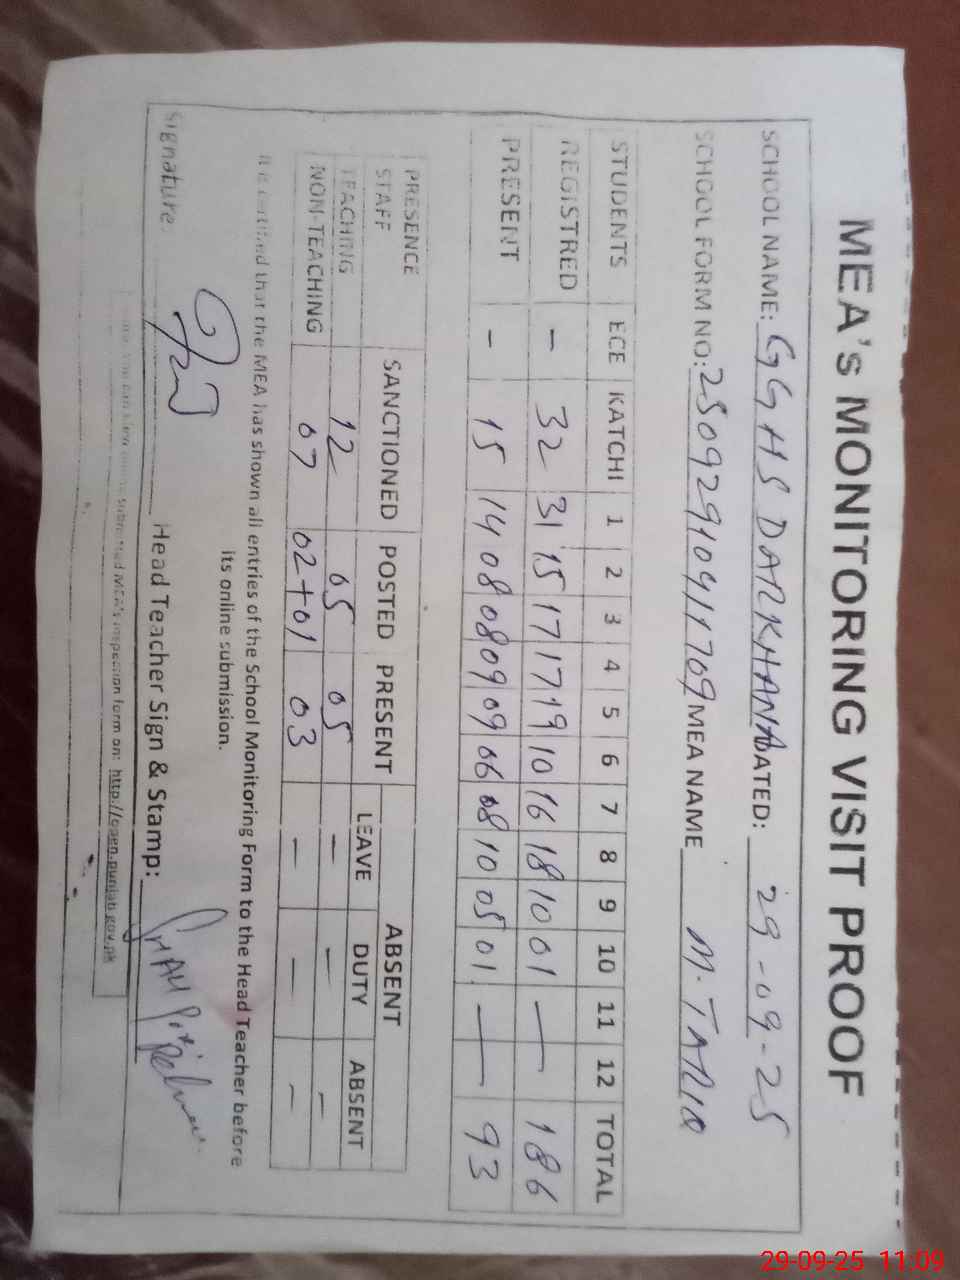 MEA's MONITORING VISIT PROOF
SCHOOL NAME: GGHS DARKHANA DATED: 29-09-25
SCHOOL FORM NO: 25092910411709 MEA NAME M. TARIQ
STUDENTS ECE KATCHI 1 2 3 4 5 6 7 8 9 10 11 12 TOTAL
REGISTRED - 32 31 15 17 17 19 10 16 18 10 01 — 186
PRESENT - 15 14 08 08 09 09 06 08 10 05 01 — 93
PRESENCE SANCTIONED POSTED PRESENT ABSENT
STAFF LEAVE DUTY ABSENT
TEACHING 12 05 05 - - -
NON-TEACHING 07 02+01 03 - - -
It is certified that the MEA has shown all entries of the School Monitoring Form to the Head Teacher before
its online submission.
Signature: Head Teacher Sign & Stamp:
submitted MEA's inspection form on: http://open.punjab.gov.pk
29-09-25 11:09